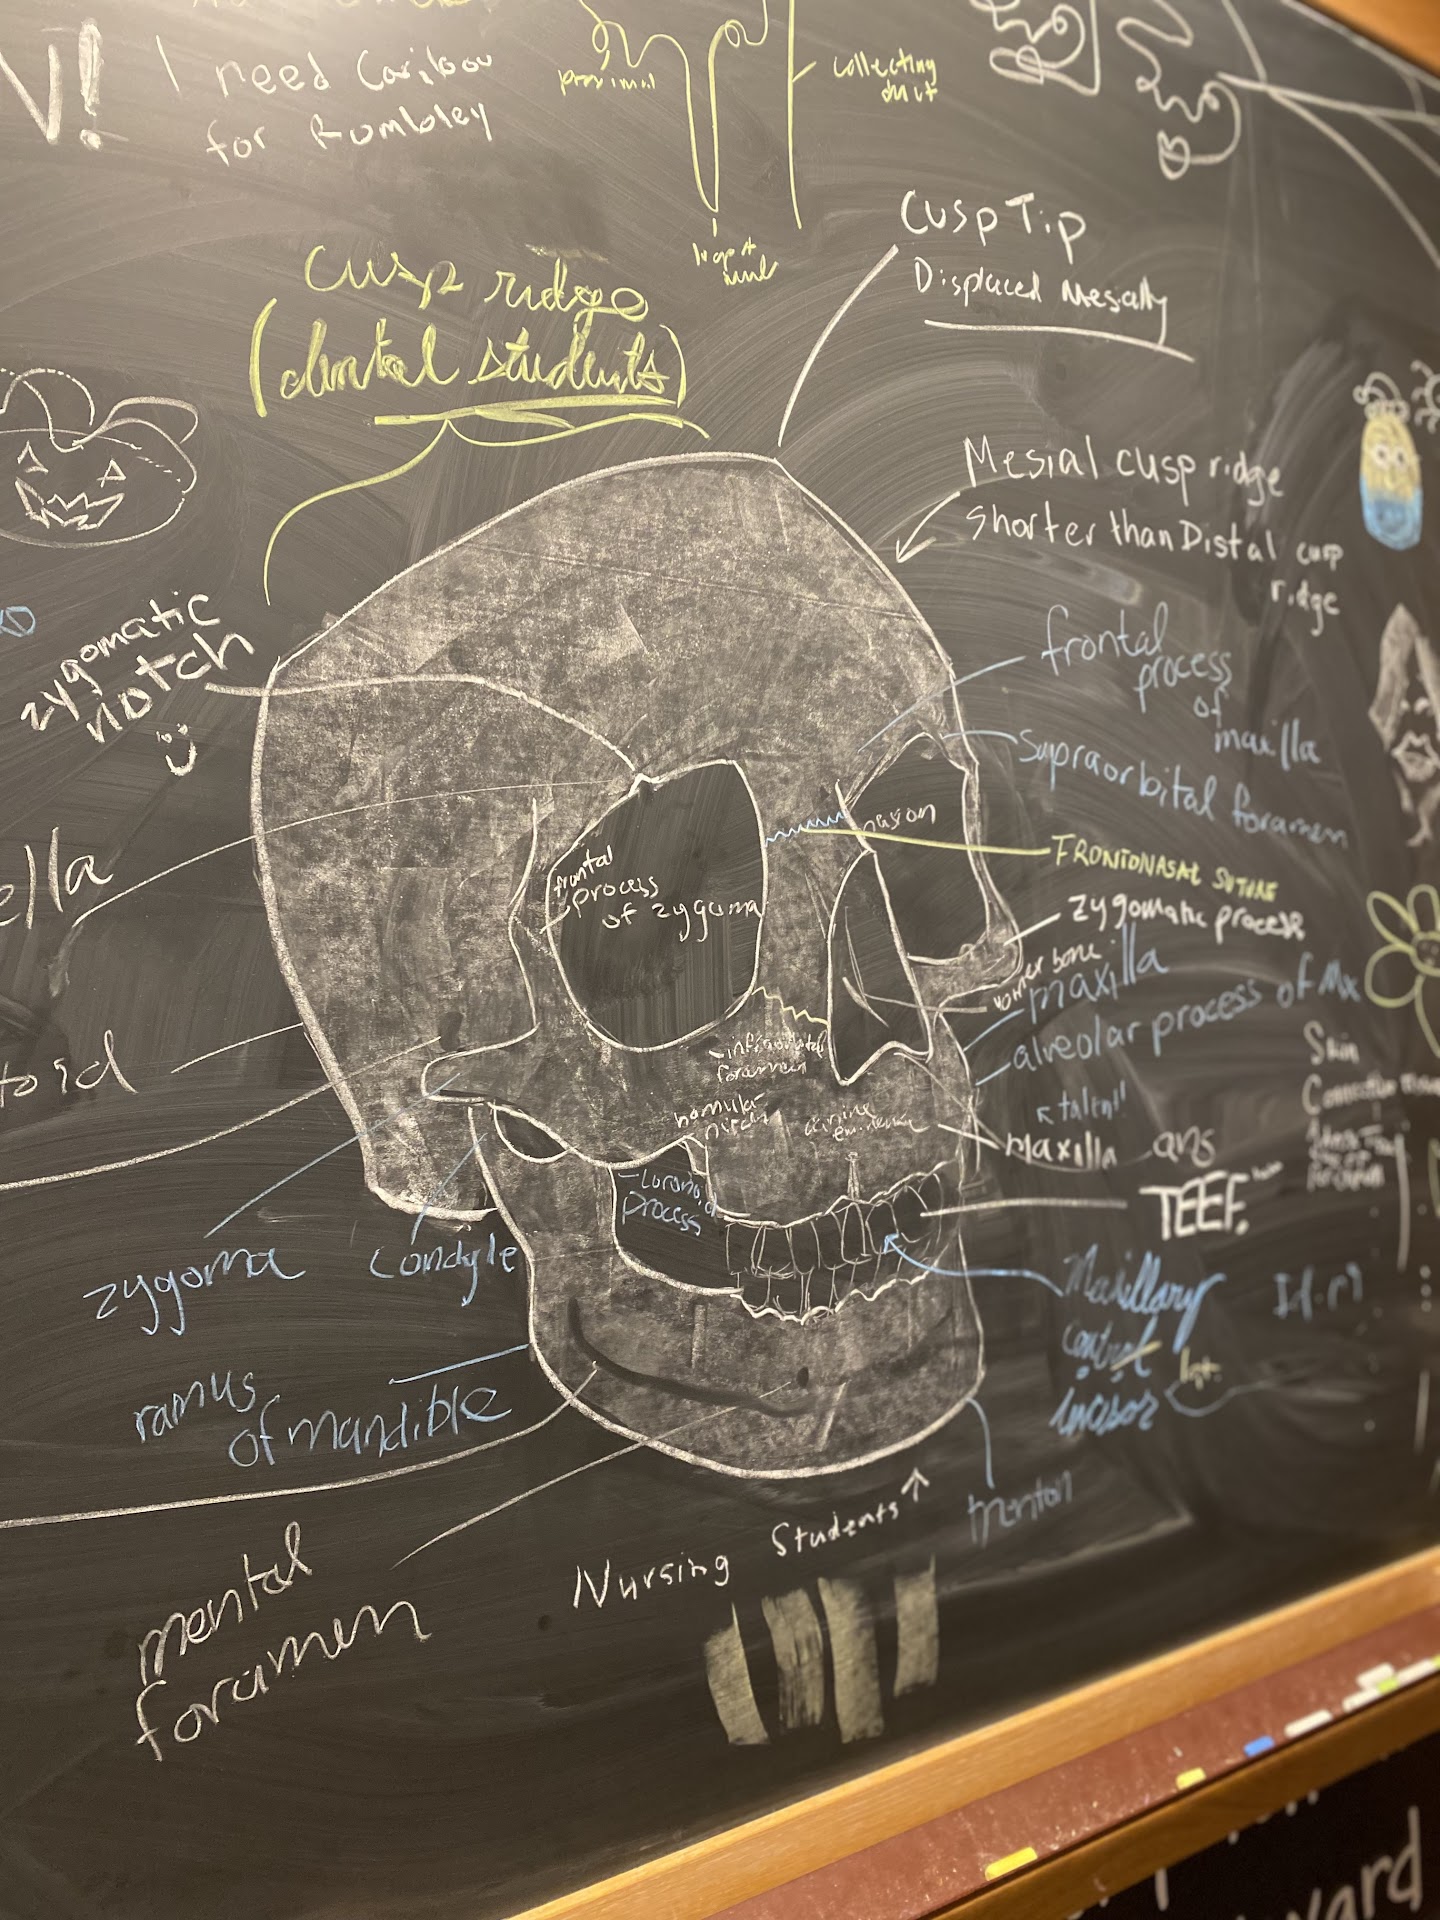 V! I need Caribou
for Rumbley
proximal
collecting
duct
Cusp Tip
Displaced Mesially
cusp ridge
(dental students)
Mesial cusp ridge
shorter than Distal cusp
ridge
zygomatic
notch
frontal
process
of
maxilla
supraorbital foramen
nasion
FRONTONASAL SUTURE
frontal
process
of zygoma
zygomatic process
ella
bone
maxilla
alveolar process of Mx
foramen
toid
Skin
talent!!
maxilla ans
TEEF.
process
zygoma
condyle
Maxillary
central
incisor
ramus
of mandible
menton
Nursing Students ↑
mental
foramen
ward